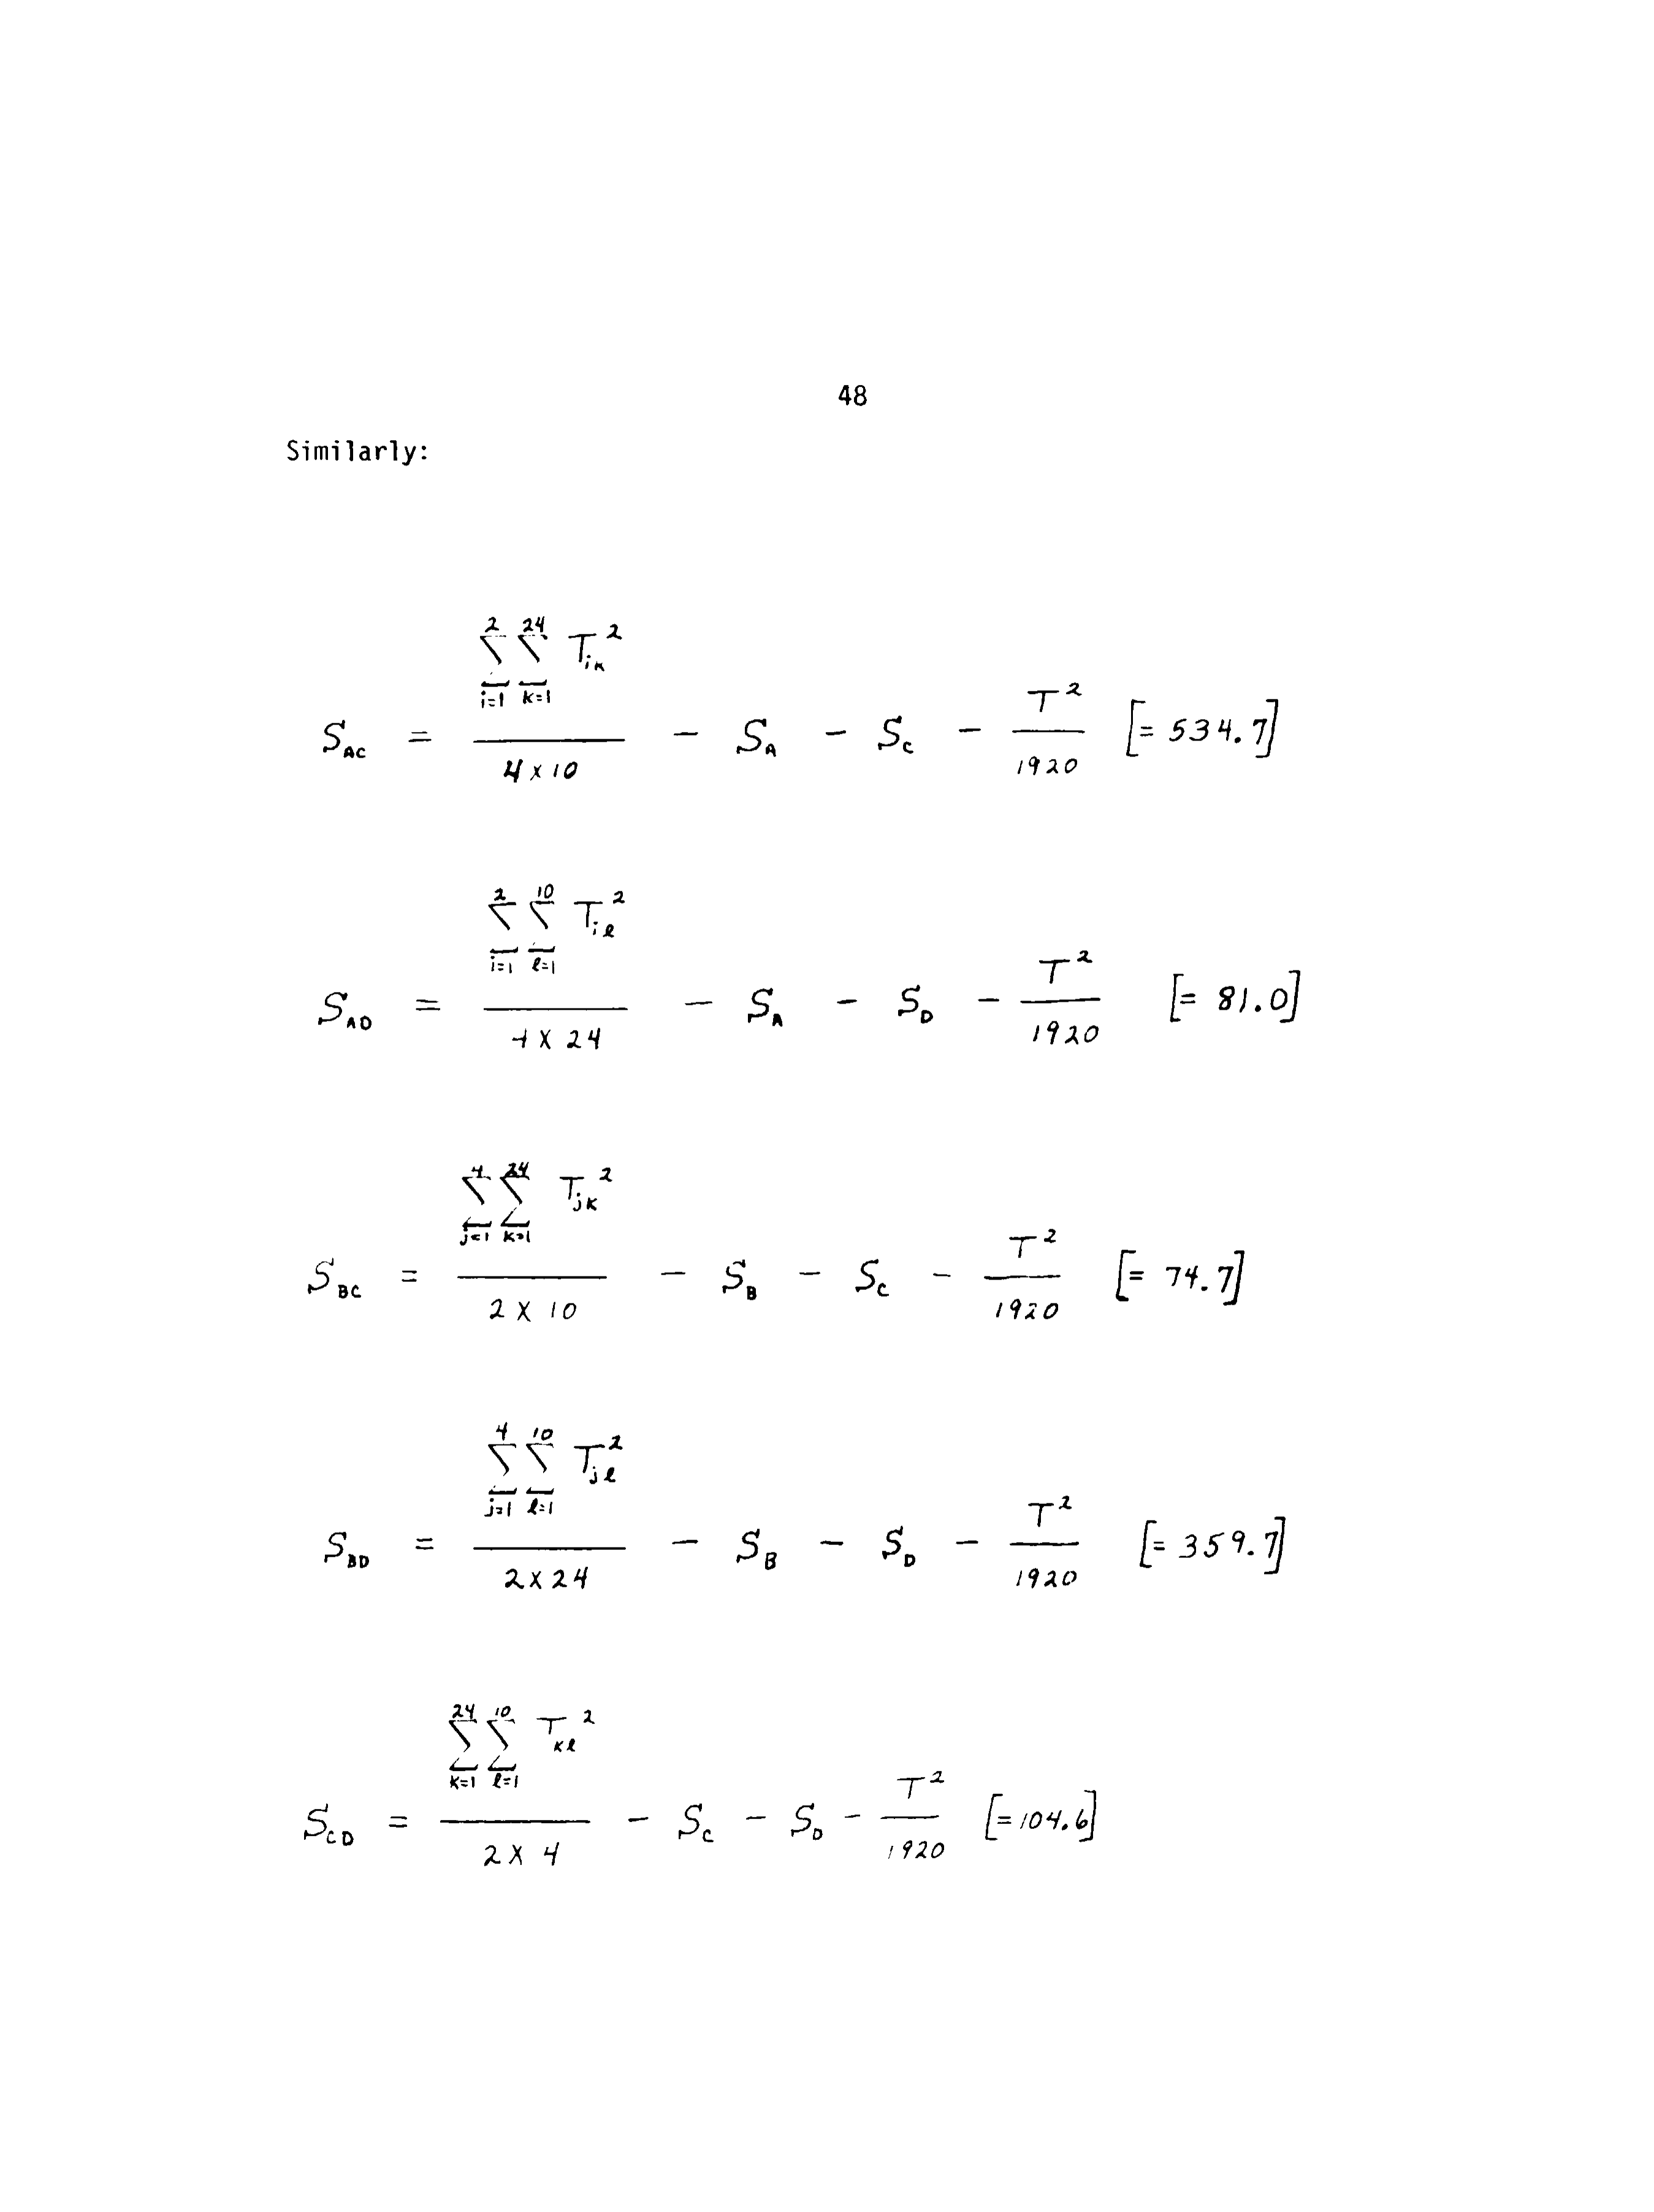 48
Similarly:
S_AC = \frac{\sum_{i=1}^{2} \sum_{k=1}^{24} T_{ik}^2}{4 x 10} - S_A - S_C - \frac{T^2}{1920} [= 534.7]
S_AD = \frac{\sum_{i=1}^{2} \sum_{ℓ=1}^{10} T_{iℓ}^2}{4 x 24} - S_A - S_D - \frac{T^2}{1920} [= 81.0]
S_BC = \frac{\sum_{j=1}^{4} \sum_{k=1}^{24} T_{jk}^2}{2 x 10} - S_B - S_C - \frac{T^2}{1920} [= 74.7]
S_BD = \frac{\sum_{j=1}^{4} \sum_{ℓ=1}^{10} T_{jℓ}^2}{2 x 24} - S_B - S_D - \frac{T^2}{1920} [= 359.7]
S_CD = \frac{\sum_{k=1}^{24} \sum_{ℓ=1}^{10} T_{kℓ}^2}{2 x 4} - S_C - S_D - \frac{T^2}{1920} [= 104.6]